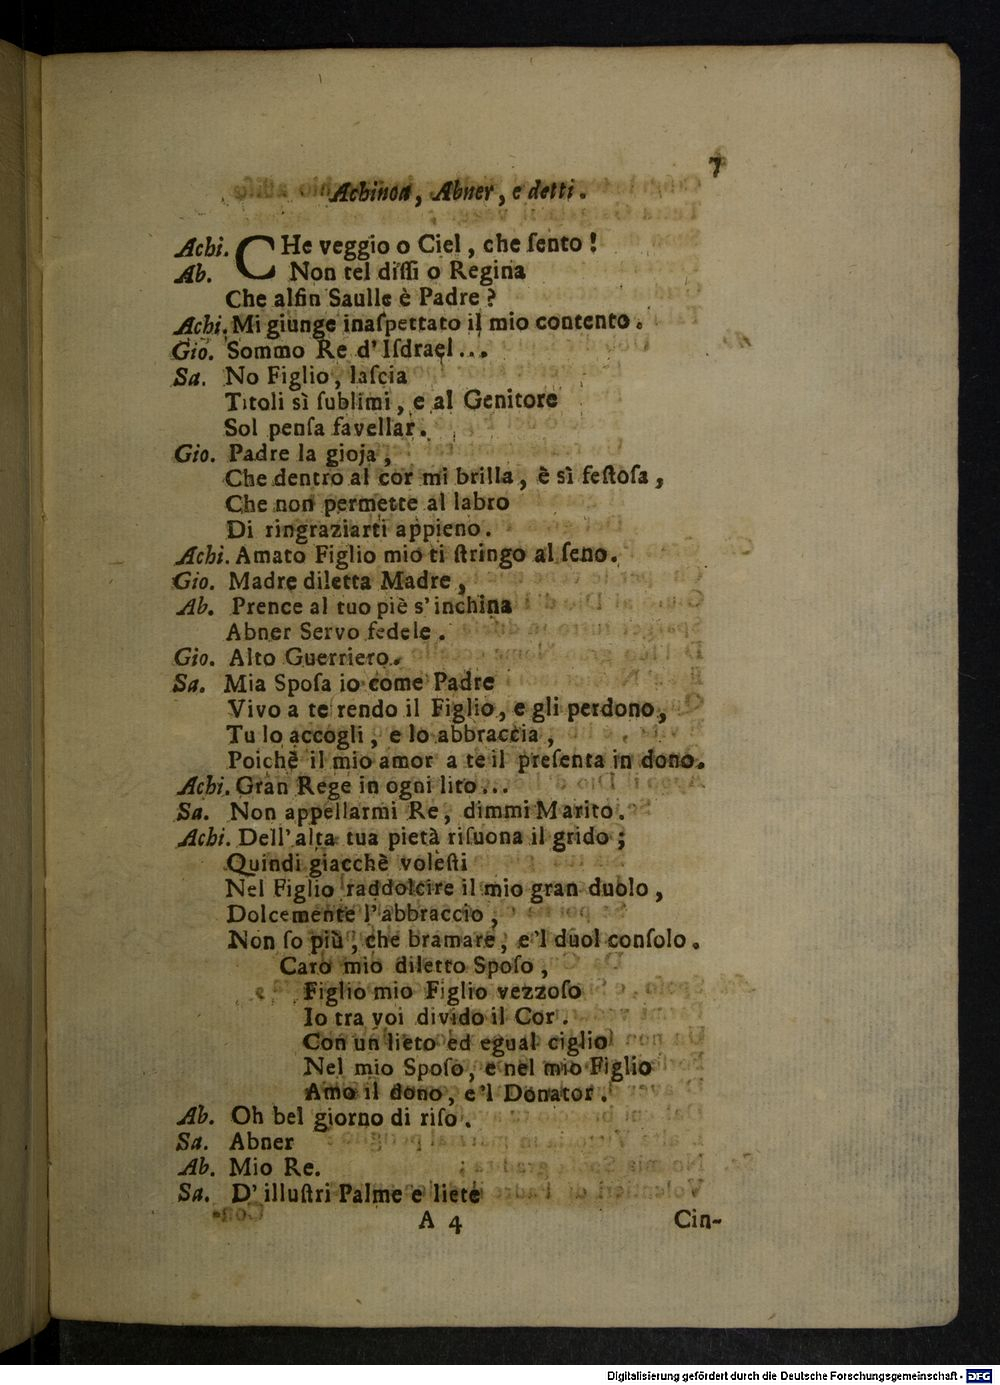 7
Achinoa, Abner, e detti.
Achi. CHe veggio o Ciel, che ſento!
Ab. Non tel diſſi o Regina
Che alfin Saulle è Padre?
Achi. Mi giunge inaſpettato il mio contento.
Gio. Sommo Re d'Iſdrael...
Sa. No Figlio, laſcia
Titoli sì ſublimi, e al Genitore
Sol penſa favellar.
Gio. Padre la gioja,
Che dentro al cor mi brilla, è sì feſtoſa,
Che non permette al labro
Di ringraziarti appieno.
Achi. Amato Figlio mio ti ſtringo al ſeno.
Gio. Madre diletta Madre,
Ab. Prence al tuo piè s'inchina
Abner Servo fedele.
Gio. Alto Guerriero.
Sa. Mia Spoſa io come Padre
Vivo a te rendo il Figlio, e gli perdono,
Tu lo accogli, e lo abbraccia,
Poichè il mio amor a te il preſenta in dono.
Achi. Gran Rege in ogni lito...
Sa. Non appellarmi Re, dimmi Marito.
Achi. Dell'alta tua pietà riſuona il grido;
Quindi giacchè voleſti
Nel Figlio raddolcire il mio gran duolo,
Dolcemente l'abbraccio,
Non ſo più, che bramare, e'l duol conſolo.
Caro mio diletto Spoſo,
Figlio mio Figlio vezzoſo
Io tra voi divido il Cor.
Con un lieto ed egual ciglio
Nel mio Spoſo, e nel mio Figlio
Amo il dono, e'l Donator.
Ab. Oh bel giorno di riſo.
Sa. Abner
Ab. Mio Re.
Sa. D'illuſtri Palme e liete
A 4 Cin-
Digitalisierung gefördert durch die Deutsche Forschungsgemeinschaft - DFG